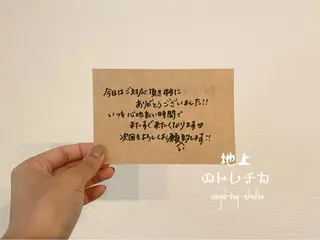 今日はご対応頂き誠に
ありがとうございました!!
いつも心地よい時間で
またすぐ来たくなります
次回もよろしくお願い致します!!
地上
のトレチカ
studio